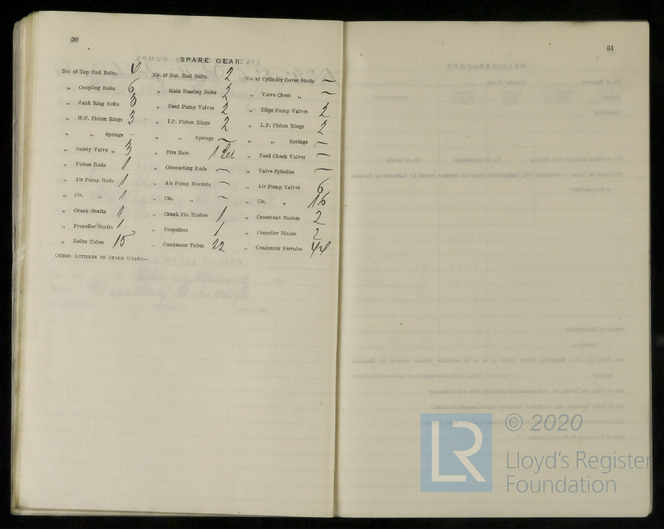 30
SPARE GEAR.
No. of Top End Bolts. No. of Bot. End Bolts. 2 No. of Cylinder Cover Studs —
„ Coupling Bolts 6 „ Main Bearing Bolts 2 „ Valve Chest „ —
„ Junk Ring Bolts 3 „ Feed Pump Valves 2 „ Bilge Pump Valves 2
„ H.P. Piston Rings 3 „ I.P. Piston Rings 2 „ L.P. Piston Rings 2
„ „ Springs — „ „ Springs — „ „ Springs —
„ Safety Valve „ 3 „ Fire Bars 1 Set „ Feed Check Valves —
„ Piston Rods 1 „ Connecting Rods — „ Valve Spindles —
„ Air Pump Rods 1 „ Air Pump Buckets — „ Air Pump Valves 6
„ Cir. „ 1 „ Cir. „ — „ Cir. „ 16
„ Crank Shafts 1 „ Crank Pin Bushes 1 „ Crosshead Bushes 2
„ Propeller Shafts 1 „ Propellers 1 „ Propeller Blades 2
„ Boiler Tubes 15 „ Condenser Tubes 22 „ Condenser Ferrules 44
OTHER ARTICLES OF SPARE GEAR:—
31
LR © 2020
Lloyd's Register
Foundation